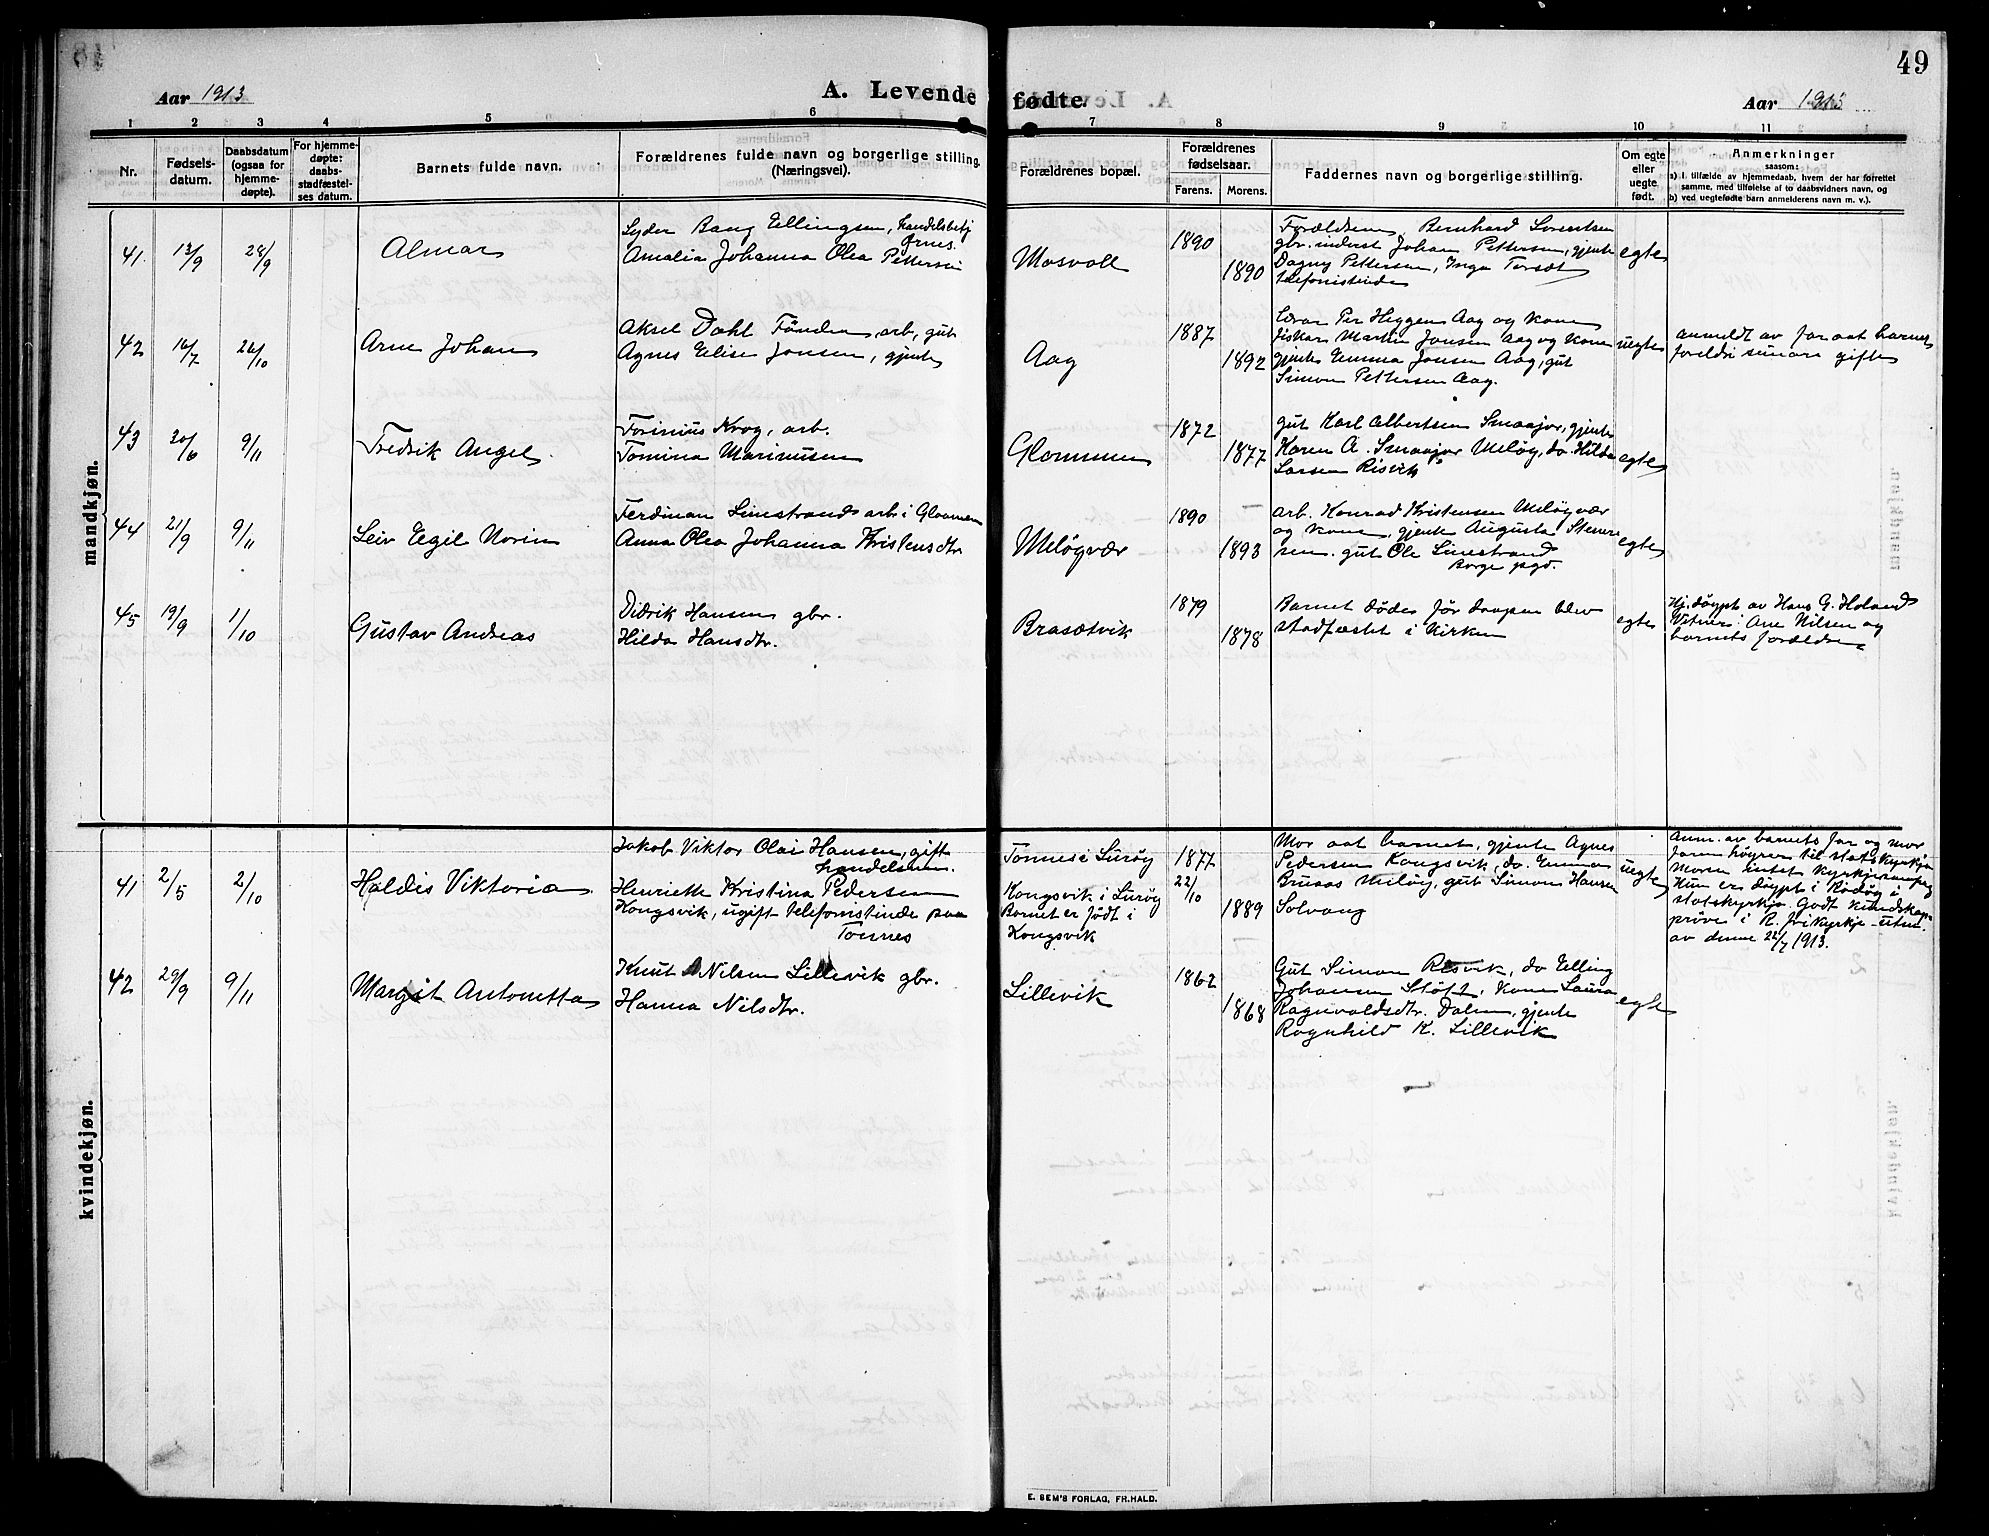 49
Aar 1913
A. Levende fødte.
Aar 1913
1 2 3 4 5 6 7 8 9 10 11
Nr.
Fødsels-
datum.
Daabsdatum
(ogsaa for
hjemme-
døpte).
For hjemme-
døpte:
daabs-
stadfæstel-
ses datum.
Barnets fulde navn.
Forældrenes fulde navn og borgerlige stilling.
(Næringsvei).
Forældrenes bopæl.
Forældrenes
fødselsaar.
Farens. Morens.
Faddernes navn og borgerlige stilling.
Om egte
eller
uegte
født.
Anmerkninger
saasom:
a) i tilfælde av hjemmedaab, hvem der har forrettet
samme, med tilføielse af to daabsvidners navn, og
b) ved uegtefødte barn anmelderens navn m. v.).
mandkjøn.
41. 13/9 28/9
Almar
Lyder Bang Ellingsen, handelsbetj
Ørnes.
Amalia Johanna Olea Pettersen
Mosvoll
1890
1890
Forældrene, Bernhard Lorentsen
gbr. inderst Johan Pettersen, gjente
Dagny Pettersen, Inga
telefonistinde
egte
42 16/7 26/10
Arne Johan
Aksel Dahl Tønder, arb, gut
Agnes Elise Jonsen, gjente
Aag
1887
1892
Lærar Per Heggen Aag og kone
fiskar Martin Jonsen Aag og kone
gjente Emma Jonsen Aag, gut
Simon Pettersen Aag.
uegte
anmeldt av far aat barnet,
foreldri seinare gifte
43 20/6 9/11
Fredrik Angel
Torinius Krog, arb.
Tomina Marinusen
Glommen
1872
1877
gut Karl Albertsen Smaajor, gjente
Karen A. Smaajor Meløy, do. Hilda
Larsen Risvik
egte
44 21/9 9/11
Leiv Egil Norin
Ferdinan Linestrand arb. i Glommen
Anna Olea Johanna Kristensdtr
Meløyvær
1890
1893
arb. Konrad Kristensen Meløyvær
og kone, gjente Augusta Stener-
sen. gut Ole Linestrand
Borge pgd.
egte
45 19/9 1/10
Gustav Andreas
Didrik Hansen gbr.
Hilda Hansdtr.
Brasetvik
1879
1878
Barnet døde før daapen blev
stadfæstet i kirken
egte
Hj. døypt av Hans G. Holand
Vitner: Ane Nilsen og
barnets forældre
kvindekjøn.
41 2/5 2/10
Haldis Viktoria
Jakob Viktor Olai Hansen, gift
handelsmn.
Henriette Kristina Pedersen
Kongsvik, ugift telefonistinde paa
Tonnes
Tonnes i Lurøy
Kongsvik i Lurøy
Barnet er født i
Kongsvik
1877
22/10
1889
Mor aat barnet, gjente Agnes
Pedersen Kongsvik, do. Emma
Bruaas Meløy, gut Simon Hansen
Solvang
uegte
Anm. av barnets far og mor
faren høyrer til statskyrkja
moren intet kyrkjesamfng
Hun er døypt i Rødøy i
statskyrkja. Godt kundskaps-
prøve i R. frikyrkje
av denne 22/7 1913.
42 29/9 9/11
Margit Antonetta
Knut A Nilsen Lillevik gbr.
Hanna Nilsdtr.
Lillevik
1862
1868
Gut Simon Risvik, do Elling
Johansen Støtt, kone Laura
Ragnvaldsdtr. Dalen, gjente
Ragnhild K. Lillevik
egte
E. SEM'S FORLAG, FR.HALD.